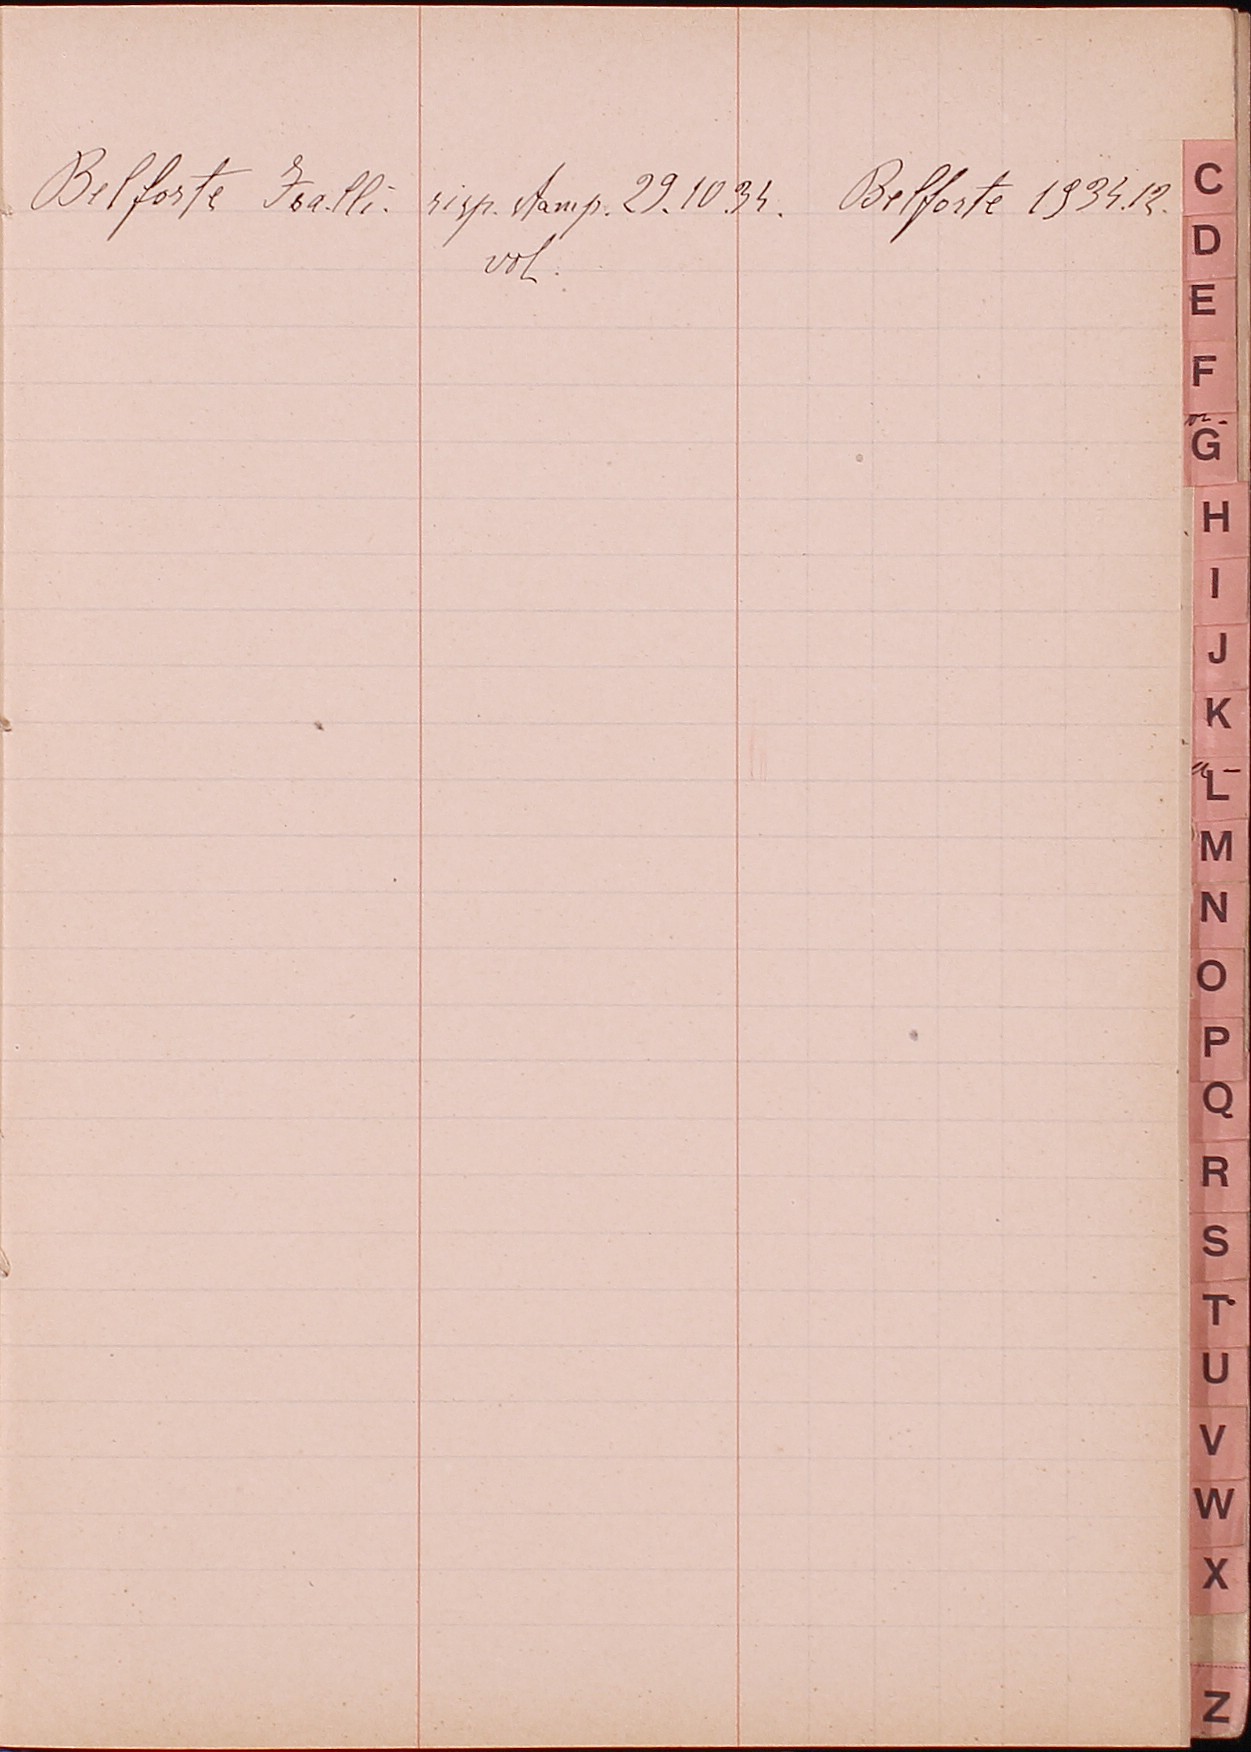 Belforte Fra.lli. risp. stamp. 29.10.34. Belforte 1934.12.
vol.
C
D
E
F
G
H
I
J
K
L
M
N
O
P
Q
R
S
T
U
V
W
X
Z